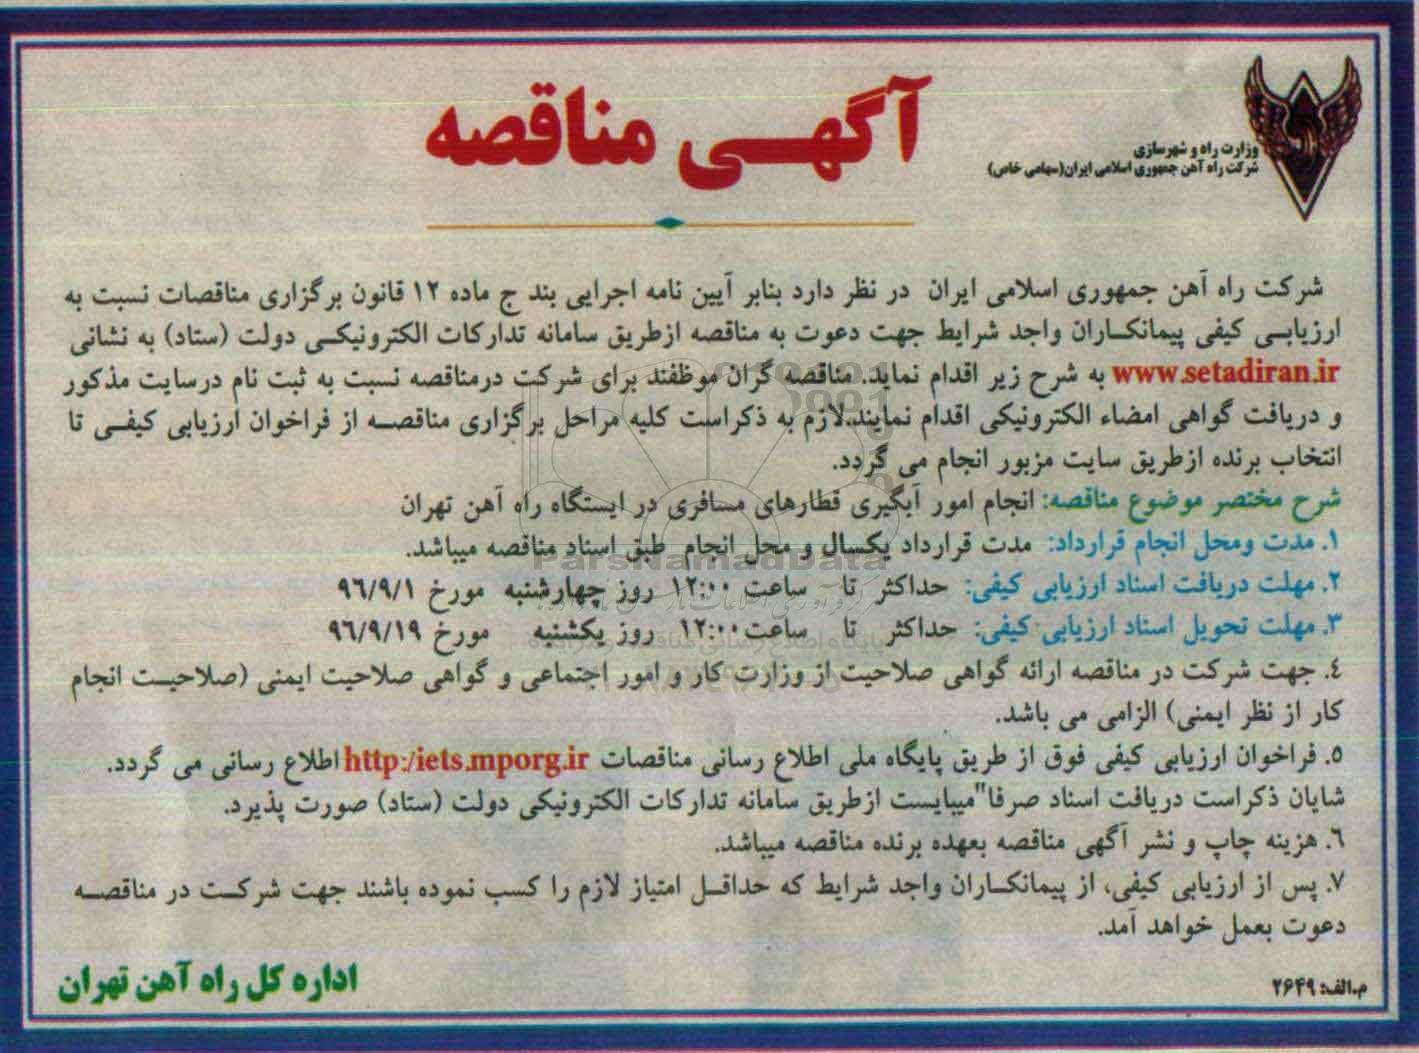 وزارت راه و شهرسازی
شرکت راه آهن جمهوری اسلامی ایران(سهامی خاص)
آگهی مناقصه
شرکت راه آهن جمهوری اسلامی ایران در نظر دارد بنابر آیین نامه اجرایی بند ج ماده ۱۲ قانون برگزاری مناقصات نسبت به
ارزیابی کیفی پیمانکاران واجد شرایط جهت دعوت به مناقصه ازطریق سامانه تدارکات الکترونیکی دولت (ستاد) به نشانی
www.setadiran.ir به شرح زیر اقدام نماید. مناقصه گران موظفند برای شرکت درمناقصه نسبت به ثبت نام درسایت مذکور
و دریافت گواهی امضاء الکترونیکی اقدام نمایند.لازم به ذکراست کلیه مراحل برگزاری مناقصه از فراخوان ارزیابی کیفی تا
انتخاب برنده ازطریق سایت مزبور انجام می گردد.
شرح مختصر موضوع مناقصه: انجام امور آبگیری قطارهای مسافری در ایستگاه راه آهن تهران
۱. مدت ومحل انجام قرارداد: مدت قرارداد یکسال و محل انجام طبق اسناد مناقصه میباشد.
۲. مهلت دریافت اسناد ارزیابی کیفی: حداکثر تا ساعت ۱۲:۰۰ روز چهارشنبه مورخ ۹۶/۹/۱
۳. مهلت تحویل اسناد ارزیابی کیفی: حداکثر تا ساعت ۱۲:۰۰ روز یکشنبه مورخ ۹۶/۹/۱۹
٤. جهت شرکت در مناقصه ارائه گواهی صلاحیت از وزارت کار و امور اجتماعی و گواهی صلاحیت ایمنی (صلاحیت انجام
کار از نظر ایمنی) الزامی می باشد.
۵. فراخوان ارزیابی کیفی فوق از طریق پایگاه ملی اطلاع رسانی مناقصات http:/iets.mporg.ir اطلاع رسانی می گردد.
شایان ذکراست دریافت اسناد صرفا"میبایست ازطریق سامانه تدارکات الکترونیکی دولت (ستاد) صورت پذیرد.
۶. هزینه چاپ و نشر آگهی مناقصه بعهده برنده مناقصه میباشد.
۷. پس از ارزیابی کیفی، از پیمانکاران واجد شرایط که حداقل امتیاز لازم را کسب نموده باشند جهت شرکت در مناقصه
دعوت بعمل خواهد آمد.
م.الف: ۲۶۴۹
اداره کل راه آهن تهران
ParsNamadData